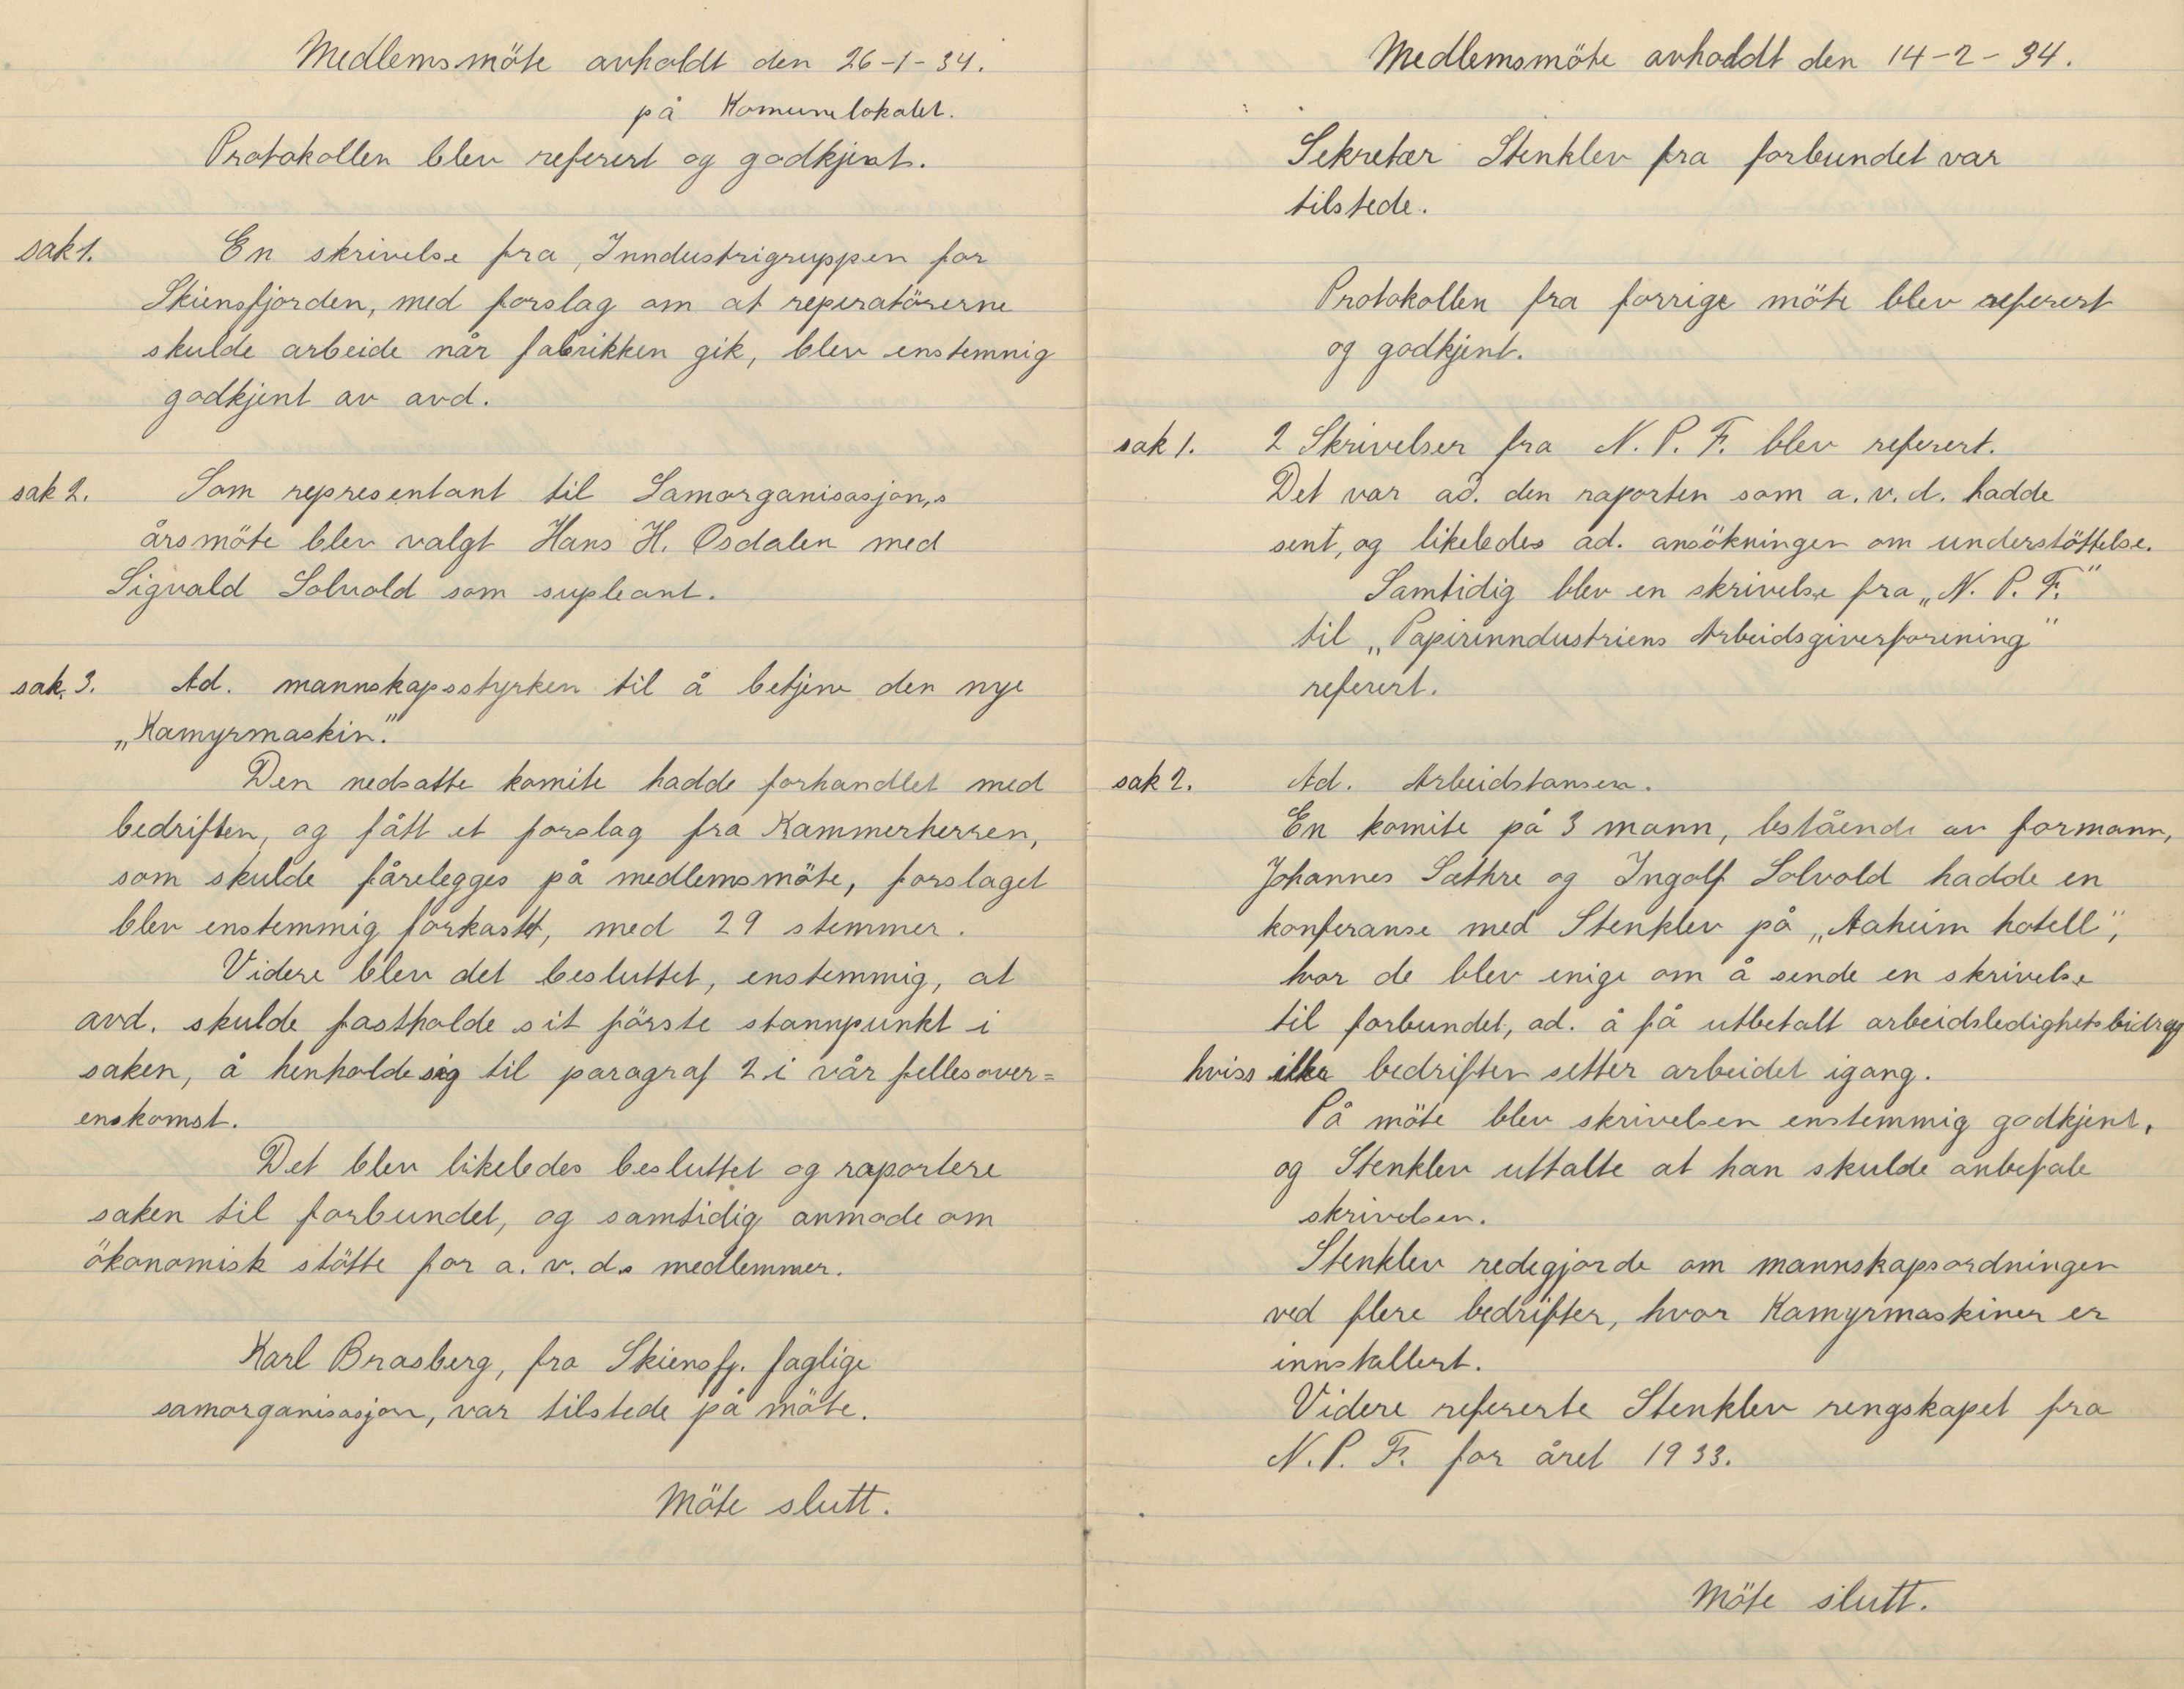 Medlemsmöte avholdt den 26-1-34.
på Komunelokalet.
Protokollen blev referert og godkjent.
sak 1. En skrivelse fra, Inndustrigruppen for
Skiensfjorden, med forslag om at reperatörerne
skulde arbeide når fabrikken gik, blev enstemnig
godkjent av avd.
sak 2. Som representant til Samorganisasjon,s
årsmöte blev valgt Hans H. Osdalen med
Sigvald Solvold som supleant.
sak. 3. Ad. mannskapsstyrken til å betjene den nye
„Kamyrmaskin."
Den nedsatte komite hadde forhandlet med
bedriften, og fått et forslag fra Kammerherren,
som skulde fårelegges på medlemsmöte, forslaget
blev enstemmig forkastet, med 29 stemmer.
Videre blev det besluttet, enstemmig, at
avd. skulde fastholde sit förste stannpunkt i
saken, å henholde sig til paragraf 2 i vår fellesover=
enskomst.
Det blev likeledes besluttet og raportere
saken til forbundet, og samtidig anmode om
ökonomisk stötte for a.v.d.s medlemmer.
Karl Brasberg, fra Skiensfj. faglige
samorganisasjon, var tilstede på möte.
Möte slutt.
Medlemsmöte avholdt den 14-2-34.
Sekretær Stenklev fra forbundet var
tilstede.
Protokollen fra forrige möte blev referert
og godkjent.
sak 1. 2 Skrivelser fra N. P. F. blev referert.
Det var ad. den raporten som a.v.d. hadde
sent, og likeledes ad. ansökningen om understöttelse.
Samtidig blev en skrivelse fra „N. P. F."
til „Papirinndustriens Arbeidsgiverforening"
referert.
sak 2. Ad. Arbeidstansen.
En komite på 3 mann, bestående av formann,
Johannes Sæthre og Ingolf Solvold hadde en
konferanse med Stenklev på „Aaheim hotell",
hvor de blev enige om å sende en skrivelse
til forbundet, ad. å få utbetalt arbeidsledighetsbidrag
hviss ikke bedriften setter arbeidet igang.
På möte blev skrivelsen enstemmig godkjent,
og Stenklev uttalte at han skulde anbefale
skrivelsen.
Stenklev redegjorde om mannskapsordningen
ved flere bedrifter, hvor Kamyrmaskiner er
innstallert.
Videre refererte Stenklev rengskapet fra
N. P. F. for året 1933.
Möte slutt.